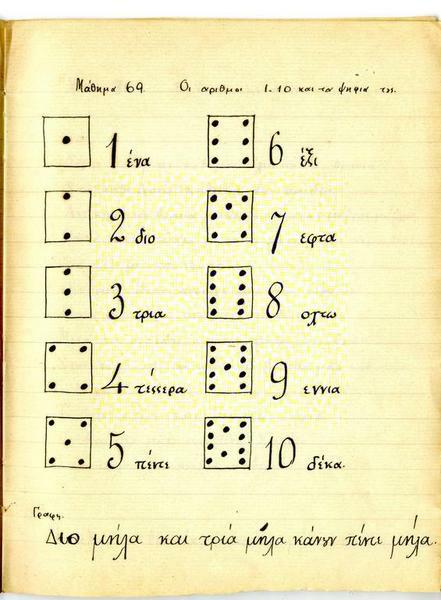 Μάθημα 69. Οι αριθμοι 1-10 και τα ψηφία της.
1 ένα
6 έξι
2 διο
7 εφτα
3 τρια
8 οχτω
4 τέσσερα
9 εννια
5 πέντε
10 δέκα.
Γραφη.
Διο μήλα και τριά μήλα κάνουν πέντε μήλα.